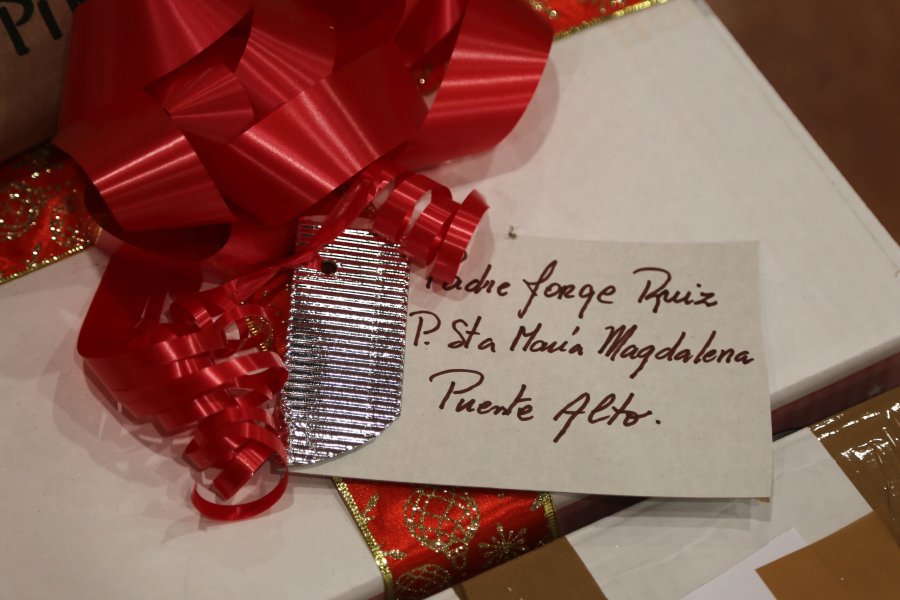 Padre Jorge Ruiz
P. Sta María Magdalena
Puente Alto.